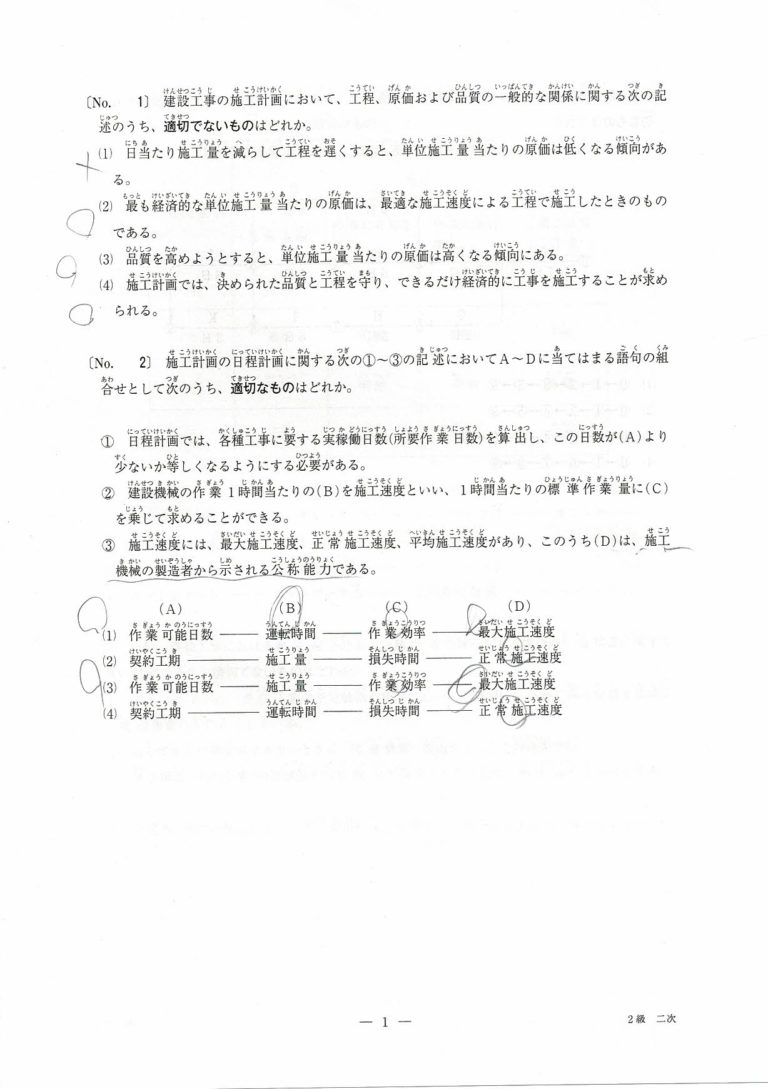 〔No. 1〕 建設工事の施工計画において、工程、原価および品質の一般的な関係に関する次の記
述のうち、適切でないものはどれか。
(1) 日当たり施工量を減らして工程を遅くすると、単位施工量当たりの原価は低くなる傾向があ
る。
(2) 最も経済的な単位施工量当たりの原価は、最適な施工速度による工程で施工したときのもの
である。
(3) 品質を高めようとすると、単位施工量当たりの原価は高くなる傾向にある。
(4) 施工計画では、決められた品質と工程を守り、できるだけ経済的に工事を施工することが求め
られる。
〔No. 2〕 施工計画の日程計画に関する次の①～③の記述においてA～Dに当てはまる語句の組
合せとして次のうち、適切なものはどれか。
① 日程計画では、各種工事に要する実稼働日数(所要作業日数)を算出し、この日数が(A)より
少ないか等しくなるようにする必要がある。
② 建設機械の作業1時間当たりの(B)を施工速度といい、1時間当たりの標準作業量に(C)
を乗じて求めることができる。
③ 施工速度には、最大施工速度、正常施工速度、平均施工速度があり、このうち(D)は、施工
機械の製造者から示される公称能力である。
(A) (B) (C) (D)
(1) 作業可能日数 ――― 運転時間 ――― 作業効率 ――― 最大施工速度
(2) 契約工期 ――― 施工量 ――― 損失時間 ――― 正常施工速度
(3) 作業可能日数 ――― 施工量 ――― 作業効率 ――― 最大施工速度
(4) 契約工期 ――― 運転時間 ――― 損失時間 ――― 正常施工速度
― 1 ―
2級 二次